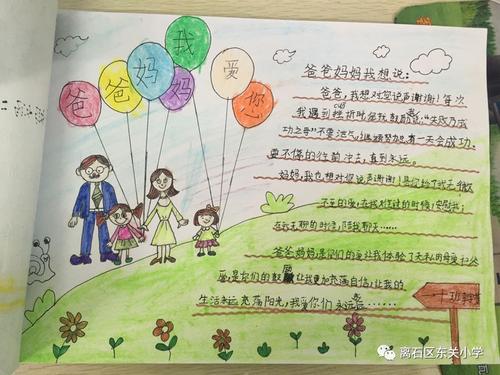 爸爸妈妈我爱您
爸爸妈妈我想说:
爸爸,我想对您说声谢谢!每次
我遇到挫折时您就教育我,"失败乃成
功之母"不要泄气,继续努力总有一天会成功。
要不停的往前冲去,直到永远。
妈妈,我也想对你说声谢谢!是你给了我无微
不至的爱,在我
的时候,安慰我;
在我无聊的时候,陪我聊天……
爸爸妈妈是你们的爱让我体验了
爱,是你们的鼓励让我更加充满自信,让我的
生活永远充满阳光,我爱你们永远……
一十班
离石区东关小学